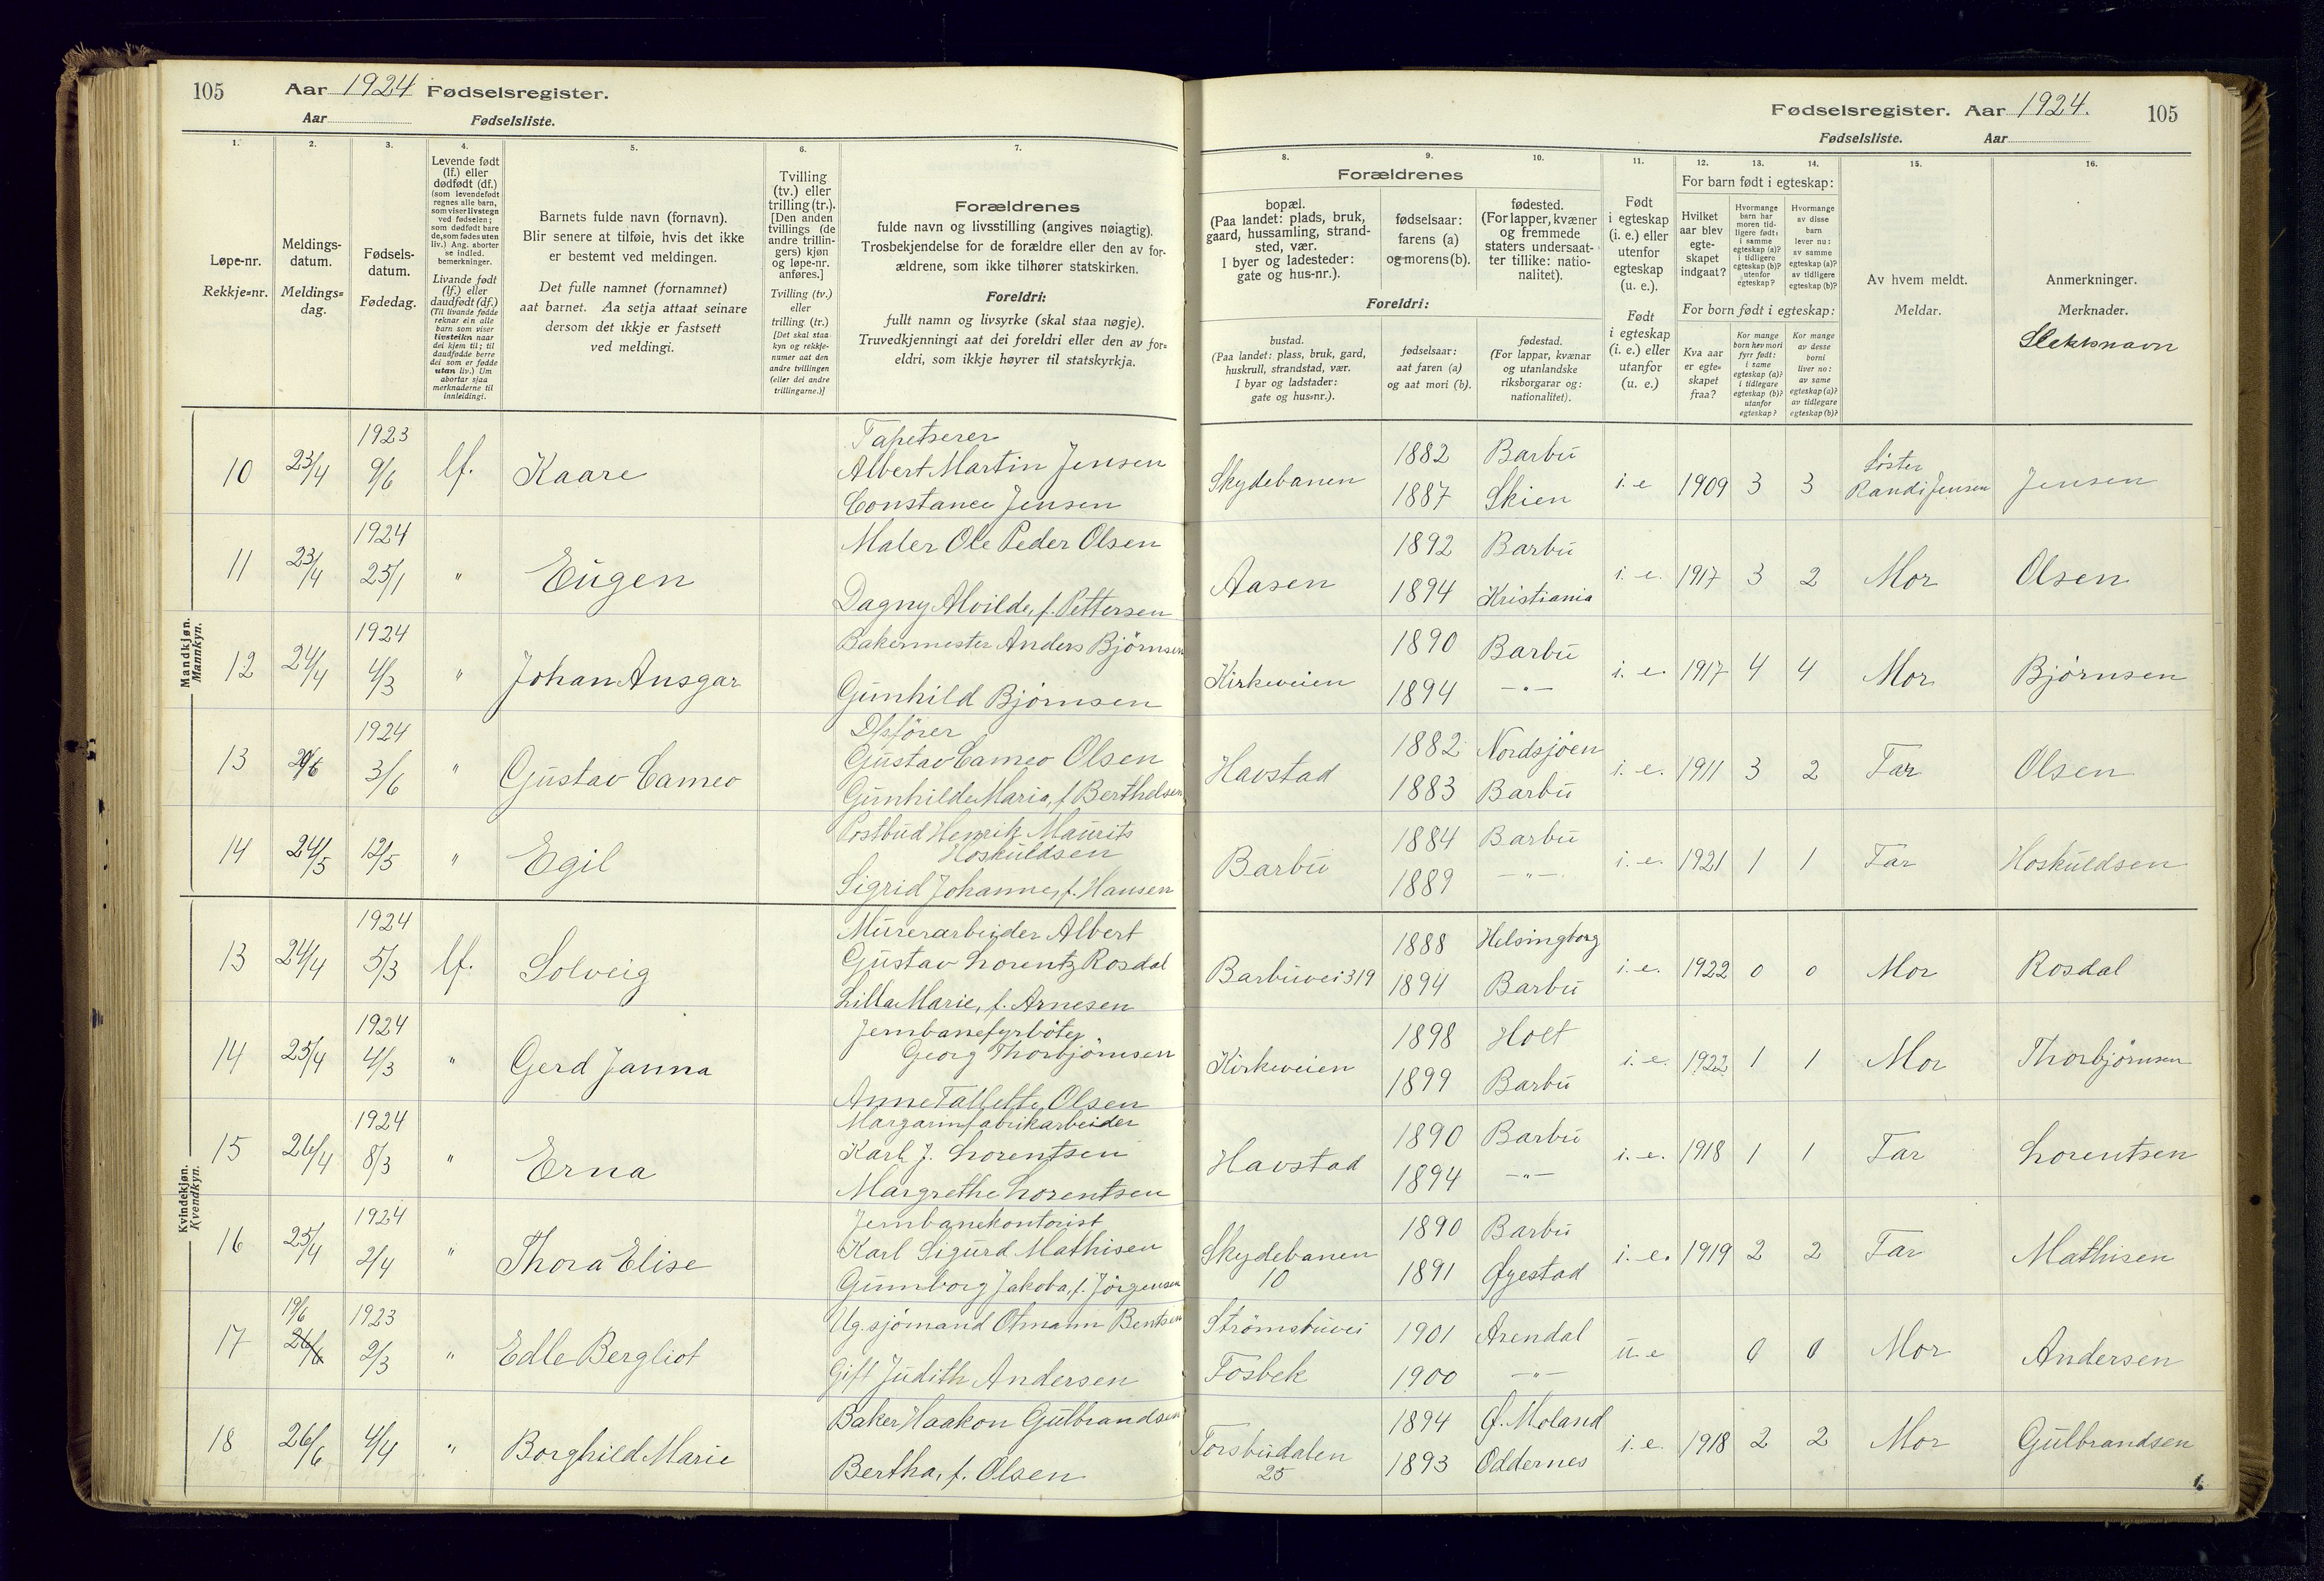 105 Aar 1924 Fødselsregister.
Aar Fødselsliste.
Fødselsregister. Aar 1924. 105
Fødselsliste. Aar
1. 2. 3. 4. 5. 6. 7.
Løpe-nr.
Rekkje=nr.
Meldings-
datum.
Meldings=
dag.
Fødsels-
datum.
Fødedag.
Levende født
(lf.) eller
dødfødt (df.)
(som levendefødt
regnes alle barn,
som viser livstegn
ved fødselen;
som dødfødt bare
de, som fødes uten
liv.) Ang. aborter
se indled.
bemerkninger.
Livande født
(lf.) eller
daudfødt (df.)
(Til livande fødde
reknar ein alle
born som viser
livsteikn naar
dei kjem til; til
daudfødde berre
dei som er fødde
utan liv.) Um
abortar sjaa
merknaderne til
innleidingi.
Barnets fulde navn (fornavn).
Blir senere at tilføie, hvis det ikke
er bestemt ved meldingen.
Det fulle namnet (fornamnet)
aat barnet. Aa setja attaat seinare
dersom det ikkje er fastsett
ved meldingi.
Tvilling
(tv.) eller
trilling (tr.).
[Den anden
tvillings (de
andre trillin-
gers) kjøn
og løpe-nr.
anføres.]
Tvilling (tv.)
eller
trilling (tr.)
[Det skal staa
kyn og rekkje-
numer aat den
andre tvillingen
(eller dei andre
trillingarne.)]
Forældrenes
fulde navn og livsstilling (angives nøiagtig).
Trosbekjendelse for de forældre eller den av for-
ældrene, som ikke tilhører statskirken.
Foreldri:
fullt namn og livsyrke (skal staa nøgje).
Truvedkjenningi aat dei foreldri eller den av for=
eldri, som ikkje høyrer til statskyrkja.
8. 9. 10. 11. 12. 13. 14. 15. 16.
Forældrenes
bopæl.
(Paa landet: plads, bruk,
gaard, hussamling, strand-
sted, vær.
I byer og ladesteder:
gate og hus-nr.).
fødselsaar:
farens (a)
og morens (b).
fødested.
(For lapper, kvæner
og fremmede
staters undersaat-
ter tillike: natio-
nalitet).
Foreldri:
bustad.
(Paa landet: plass, bruk, gard,
huskrull, strandstad, vær.
I byar og ladstader:
gate og hus=nr.).
fødselsaar:
aat faren (a)
og aat mori (b).
fødestad.
(For lappar, kvænar
og utanlandske
riksborgarar og:
nationalitet).
Født
i egteskap
(i. e.) eller
utenfor
egteskap
(u. e.).
Født
i egteskap
(i. e.) eller
utanfor
(u. e.)
For barn født i egteskap:
Hvilket
aar blev
egte-
skapet
indgaat?
Hvormange
barn har
moren tid-
ligere født:
i samme
egteskap (a)?
i tidligere
egteskap (b)?
utenfor
egteskap?
Hvormange
av disse
barn
lever nu:
av samme
egteskap (a)?
av tidligere
egteskap (b)?
For born født i egteskap:
Kva aar
er egte=
skapet
fraa?
Kor mange
born hev mori
fyrr født:
i same
egteskap (a)?
i tidlegare
egteskap (b)?
utanfor
egteskap?
Kor mange
av desse
borni
liver no:
av same
egteskap (a)?
av tidlegare
egteskap (b)?
Av hvem meldt.
Meldar.
Anmerkninger.
Merknader.
Slektsnavn
Mandkjøn.
Mannkyn.
10 23/4 1923 9/6 lf. Kaare
Tapetserer
Albert Martin Jensen
Constance Jensen
Skydebanen 1882 Barbu
1887 Skien
i. e 1909 3 3 Søster
Randi Jensen Jensen
11 23/4 1924 25/1 " Eugen
Maler Ole Peder Olsen
Dagny Alvilde, f. Pettersen
Aasen 1892 Barbu
1894 Kristiania
i. e. 1917 3 2 Mor Olsen
12 24/4 1924 4/3 " Johan Ansgar
Bakermester Anders Bjørnsen
Gunhild Bjørnsen
Kirkeveien 1890 Barbu
1894 —"—
i. e. 1917 4 4 Mor Bjørnsen
13 1924 3/6 " Gustav Cameo
Gustav Cameo Olsen
Gunhilde Maria, f Berthelsen
Havstad 1882 Nordsjøen
1883 Barbu
i. e. 1911 3 2 Far Olsen
14 24/5 12/5 " Egil
Postbud Henrik Maurits
Hoskuldsen
Sigrid Johanne, f. Hansen
Barbu 1884 Barbu
1889 —"—
i. e. 1921 1 1 Far Hoskuldsen
Kvindekjøn.
Kvendkyn.
13 24/4 1924 5/3 lf. Solveig
Murerarbeider Albert
Gustav Lorentz Rosdal
Lilla Marie, f. Arnesen
Barbuvei 319 1888 Helsingborg
1894 Barbu
i. e. 1922 0 0 Mor Rosdal
14 25/4 1924 4/3 " Gerd Janna
Jernbanefyrbøter
Georg Thorbjørnsen
Anne Tallette Olsen
Kirkeveien 1898 Holt
1899 Barbu
i. e. 1922 1 1 Mor Thorbjørnsen
15 26/4 1924 8/3 " Erna
Margarinfabrikarbeider
Karl J. Lorentsen
Margrethe Lorentsen
Havstad 1890 Barbu
1894 —"—
i. e. 1918 1 1 Far Lorentsen
16 25/4 1924 2/4 " Thora Elise
Jernbanekontorist
Karl Sigurd Mathisen
Gunnborg Jakoba, f. Jørgensen
Skydebanen
10 1890 Barbu
1891 Øyestad
i. e. 1919 2 2 Far Mathisen
17 19/6 26/6 1923 2/3 " Edle Bergliot
Ug. sjømand Otmann Bentsen
Gift Judith Andersen
Strømsbuvei 1901 Arendal
Fosbek 1900 —"—
u. e 0 0 Mor Andersen
18 26/6 4/4 " Borghild Marie
Baker Haakon Gulbrandsen
Bertha, f. Olsen
Torsbudalen
25 1894 Ø. Moland
1893 Oddernes
i. e. 1918 2 2 Mor Gulbrandsen